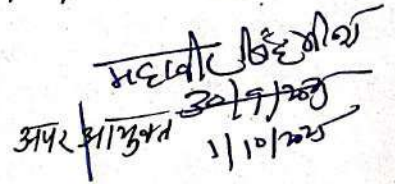 महावीर सिंह मौर्य
30/9/2025
अपर आयुक्त
1/10/2025